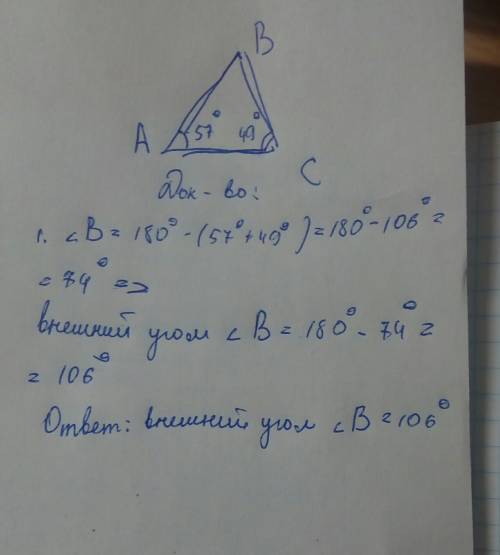 B
A 57° 49° C
Док-во:
1. ∠B = 180° - (57° + 49°) = 180° - 106° =
= 74° =>
внешний угол ∠B = 180° - 74° =
= 106°
Ответ: внешний угол ∠B = 106°